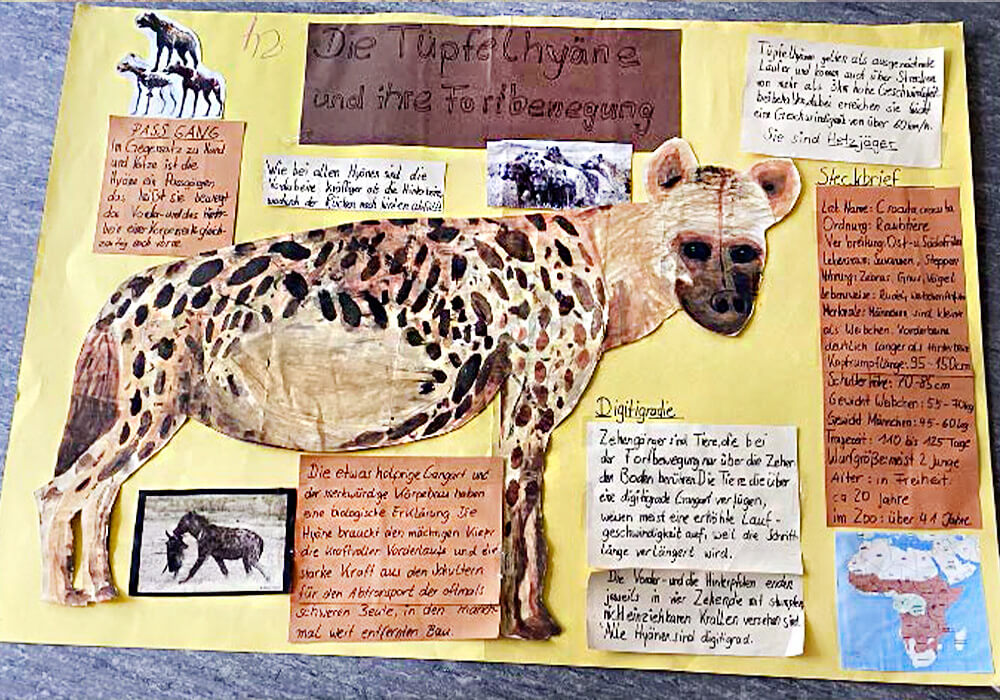 Die Tüpfelhyäne
und ihre Fortbewegung
Tüpfelhyänen gelten als ausgezeichnete
Läufer und können auch über Strecken
von mehr als 3km hohe Geschwindigkeit
beibehalten, dabei erreichen sie leicht
eine Geschwindigkeit von über 60 km/h.
Sie sind Hetzjäger
PASSGANG
Im Gegensatz zu Hund
und Katze ist die
Hyäne ein Passgänger,
das heißt sie bewegt
das Vorder- und das Hinter-
bein einer Körperseite gleich-
zeitig nach vorne.
Wie bei allen Hyänen sind die
Vorderbeine kräftiger als die Hinterbeine,
wodurch der Rücken nach hinten abfällt.
Steckbrief
Lat. Name: Crocuta crocuta
Ordnung: Raubtiere
Verbreitung: Ost- u. Südafrika
Lebensraum: Savannen, Steppen
Nahrung: Zebras, Gnus, Vögel
Lebensweise: Rudel,
Merkmale: Männchen sind kleiner
als Weibchen. Vorderbeine
deutlich länger als Hinterbeine
Kopfrumpflänge: 95-150cm
Schulterhöhe: 70-85cm
Gewicht Weibchen: 55-70kg
Gewicht Männchen: 45-60kg
Tragezeit: 110 bis 125 Tage
Wurfgröße: meist 2 Junge
Alter: in Freiheit:
ca 20 Jahre
im Zoo: über 41 Jahre
Digitigradie
Zehengänger sind Tiere, die bei
der Fortbewegung nur über die Zehen
den Boden berühren. Die Tiere die über
eine digitigrade Gangart verfügen,
weisen meist eine erhöhte Lauf-
geschwindigkeit auf, weil die Schritt-
länge verlängert wird.
Die Vorder- und die Hinterpfoten enden
jeweils in vier Zehen die mit stumpfen,
nicht einziehbaren Krallen versehen sind.
Alle Hyänen sind digitigrad.
Die etwas holprige Gangart und
der merkwürdige Körperbau haben
eine biologische Erklärung. Die
Hyäne braucht den mächtigen Kiefer,
die kraftvollen Vorderläufe und die
starke Kraft aus den Schultern
für den Abtransport der oftmals
schweren Beute, in den manch-
mal weit entfernten Bau.